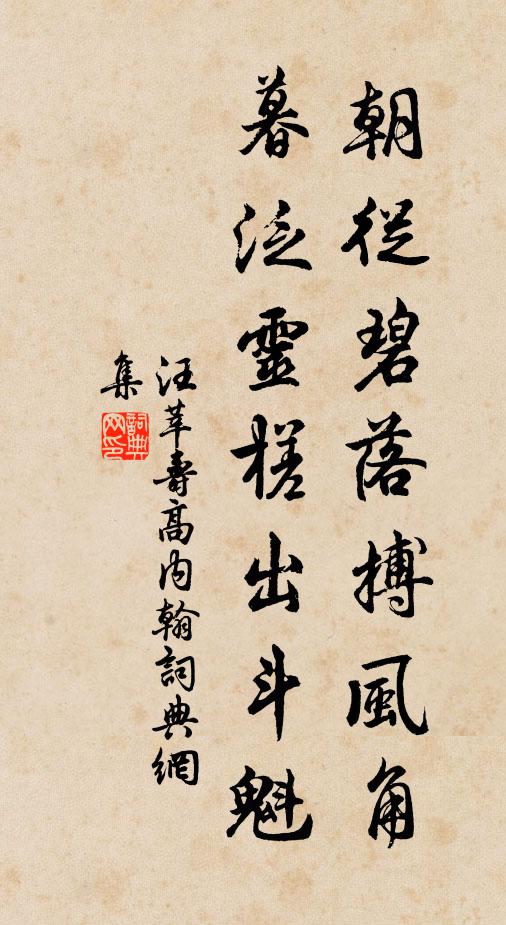 朝從碧落摶風角
暮泛靈槎出斗魁
汪莘壽高內翰詞典網
集
詞典网印